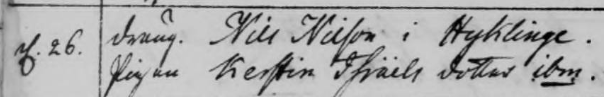 d. 26. dräng. Nils Nilson i Hyklinge.
Pigan Kerstin Isräels dotter ibm.